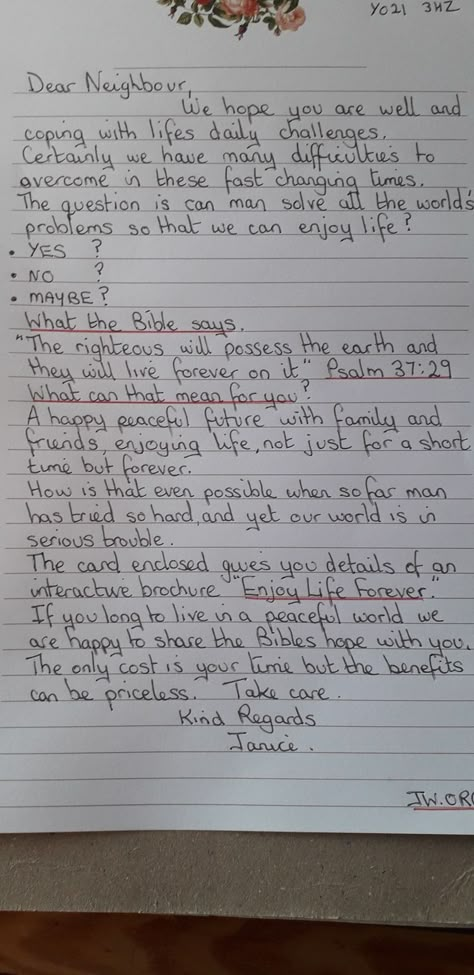 YO21 3HZ
Dear Neighbour,
We hope you are well and
coping with lifes daily challenges.
Certainly we have many difficulties to
overcome in these fast changing times.
The question is can man solve all the world's
problems so that we can enjoy life?
• YES ?
• NO ?
• MAYBE?
What the Bible says.
"The righteous will possess the earth and
they will live forever on it" Psalm 37:29
What can that mean for you?
A happy peaceful future with family and
friends, enjoying life, not just for a short
time but forever.
How is that even possible when so far man
has tried so hard, and yet our world is in
serious trouble.
The card enclosed gives you details of an
interactive brochure "Enjoy Life Forever."
If you long to live in a peaceful world we
are happy to share the Bibles hope with you.
The only cost is your time but the benefits
can be priceless. Take care.
Kind Regards
Janice.
JW.ORG